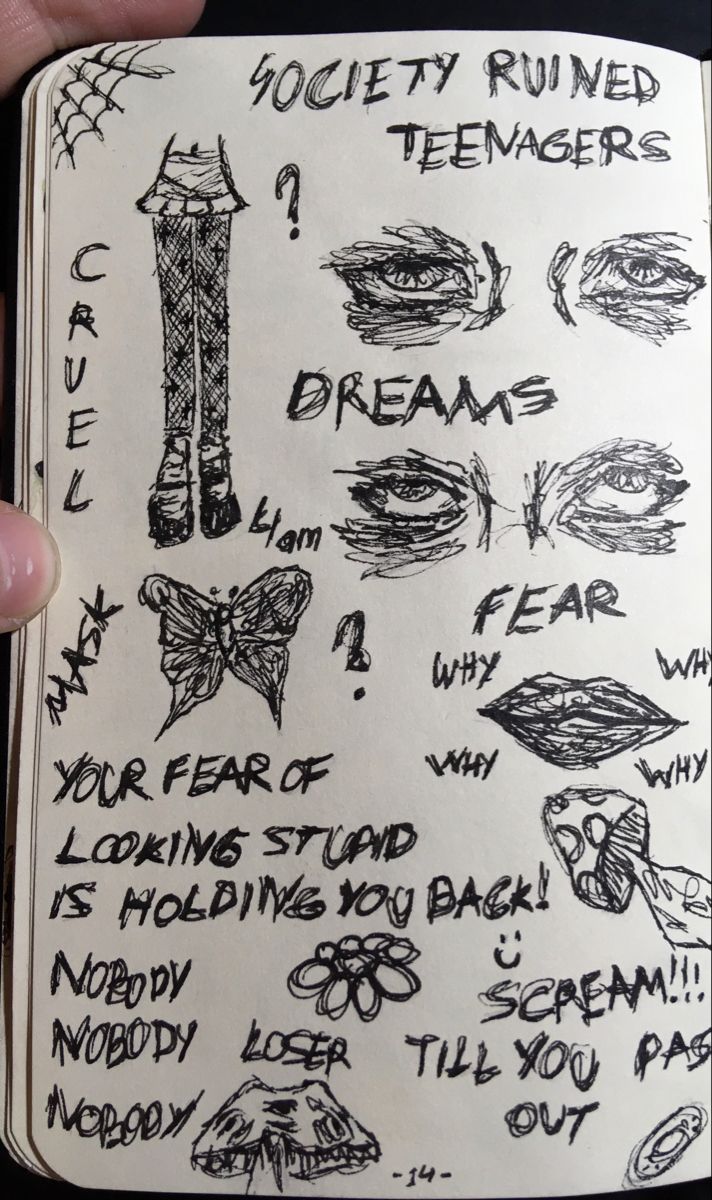 SOCIETY RUINED
TEENAGERS
?
CRUEL
DREAMS
FEAR
MASK
?
WHY WHY
WHY WHY
YOUR FEAR OF
LOOKING STUPID
IS HOLDING YOU BACK!
NOBODY
SCREAM!!!
NOBODY LOSER TILL YOU PAS
NOBODY OUT
-14-